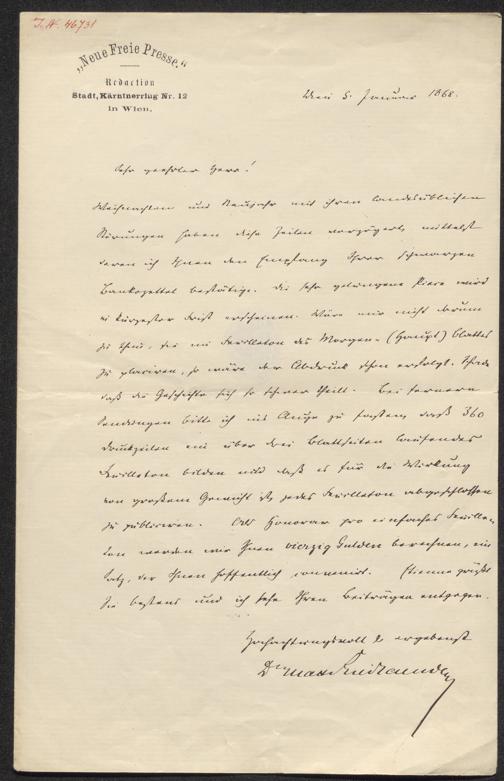 I.N. 46731
„Neue Freie Presse.“
Redaction
Stadt, Kärntnerring Nr. 12
in Wien.
Wien 5. Januar 1868.
Sehr geehrter Herr!
Weihnachten und Neujahr mit ihren landesüblichen
Störungen haben diese Zeilen verzögert, mittelst
deren ich Ihnen den Empfang Ihrer schwarzen
Bankozettel bestätige. Die sehr gelungene Piece wird
in kürzester Frist erscheinen. Wäre mir nicht darum
zu thun, sie im Feuilleton des Morgen- (Haupt) blattes
zu placiren, so wäre der Abdruck schon erfolgt. Schade
daß die Geschichte sich so schwer theilt. Bei fernern
Sendungen bitte ich ins Auge zu fassen, daß 360
Druckzeilen ein über drei Blattseiten laufendes
Feuilleton bilden und daß es für die Wirkung
von großem Gewicht ist, jedes Feuilleton abgeschlossen
zu publiciren. Als Honorar pro einfaches Feuille-
ton werden wir Ihnen vierzig Gulden berechnen, ein
Satz, der Ihnen hoffentlich convenirt. Etienne grüßt
Sie bestens und ich sehe Ihren Beiträgen entgegen.
Hochachtungsvoll & ergebenst
Dr Max Friedlaender